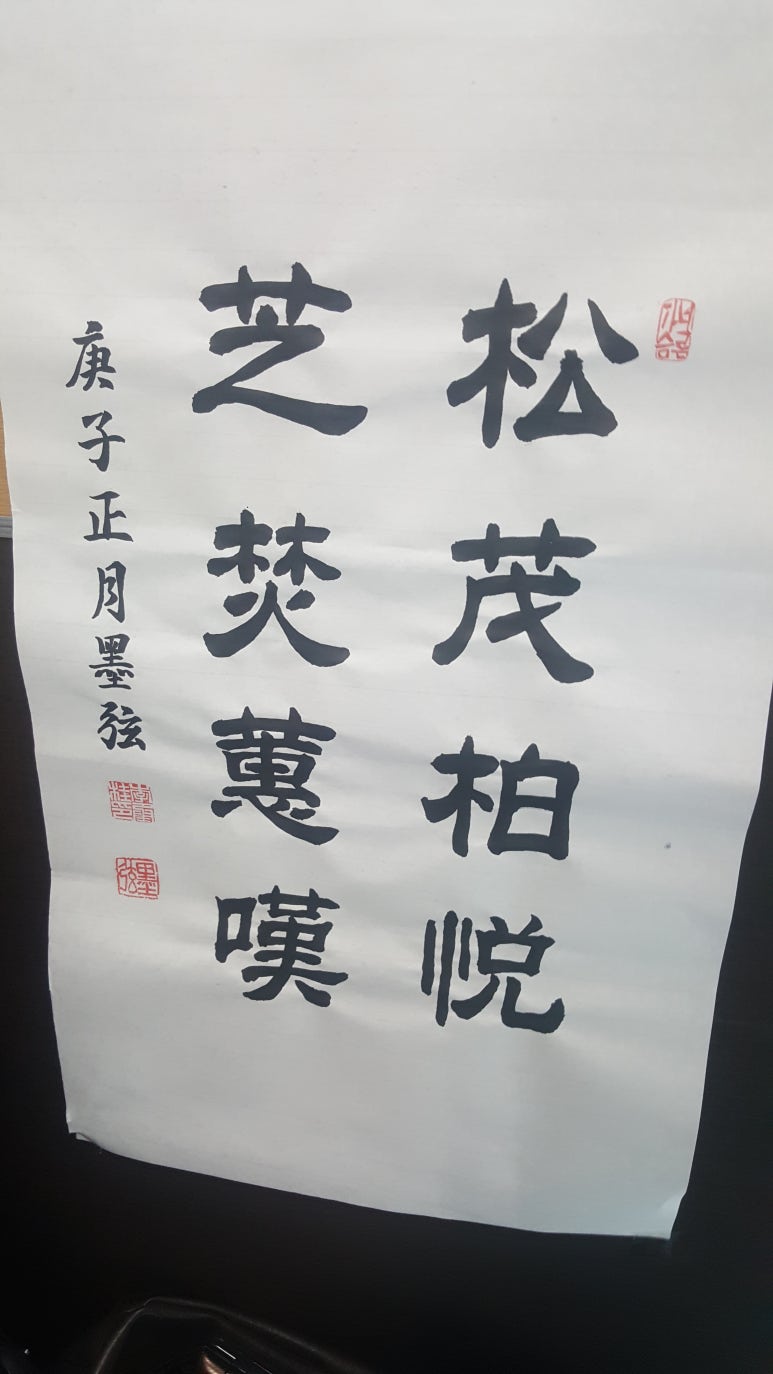 松茂柏悦
芝焚蕙嘆
庚子正月墨弦
墨弦